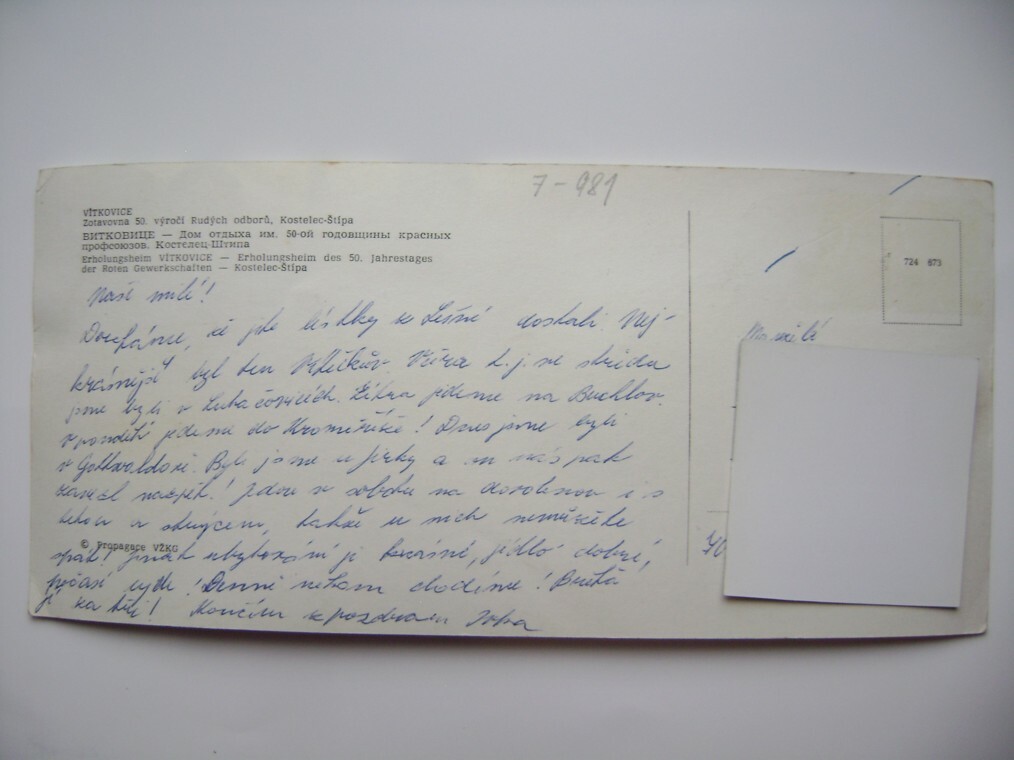 7 - 981
VÍTKOVICE
Zotavovna 50. výročí Rudých odborů, Kostelec-Štípa
ВИТКОВИЦЕ — Дом отдыха им. 50-ой годовщины красных
профсоюзов. Костелец-Штипа
Erholungsheim VÍTKOVICE — Erholungsheim des 50. Jahrestages
der Roten Gewerkschaften — Kostelec-Štípa
724 673
Naši milí!
Doufáme, že jste lístky z Lešné dostali. Nej-
krásnější byl ten Včera t.j. ve středu
jsme byli v Luhačovicích. Zítra jedeme na Buchlov.
V pondělí jedeme do Kroměříže! Dnes jsme byli
v Gottwaldově. Byli jsme u a on nás pak
zavezl nazpět! Jedou v sobotu na dovolenou i s
tetou a strýcem, takže u nich nemůžete
spát! Jinak ubytování je krásné, jídlo dobré,
počasí ujde! Denně někam chodíme!
je za Končím s pozdravem
© Propagace VŽKG